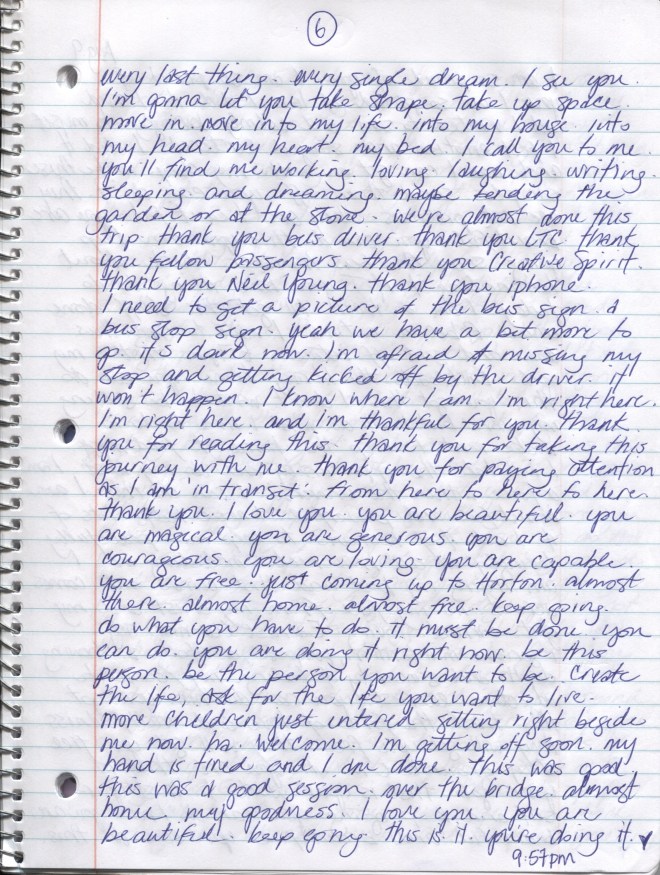 6
every last thing. every single dream. I see you.
I'm gonna let you take shape. take up space.
move in. move into my life. into my house. into
my head. my heart. my bed. I call you to me.
you'll find me working. loving. laughing. writing.
sleeping. and dreaming. maybe tending the
garden or at the store. we're almost done this
trip. thank you bus driver. thank you LTC. thank
you fellow passengers. thank you Creative Spirit.
thank you Neil Young. thank you iphone.
I need to get a picture of the bus sign. a
bus stop sign. yeah we have a bit more to
go. it's dark now. I'm afraid of missing my
stop and getting kicked off by the driver. it
won't happen. I know where I am. I'm right here.
I'm right here. and I'm thankful for you. thank
you for reading this. thank you for taking this
journey with me. thank you for paying attention
as I am 'in transit'. from here to here to here.
thank you. I love you. you are beautiful. you
are magical. you are generous. you are
courageous. you are loving. you are capable.
you are free. just coming up to Horton. almost
there. almost home. almost free. keep going.
do what you have to do. it must be done. you
can do. you are doing it right now. be this
person. be the person you want to be. create
the life, ask for the life you want to live.
more children just entered. sitting right beside
me now. ha. welcome. I'm getting off soon. my
hand is tired and I am done. this was good.
this was a good session. over the bridge. almost
home. my goodness. I love you. you are
beautiful. keep going. this is it. you're doing it.
9:57pm